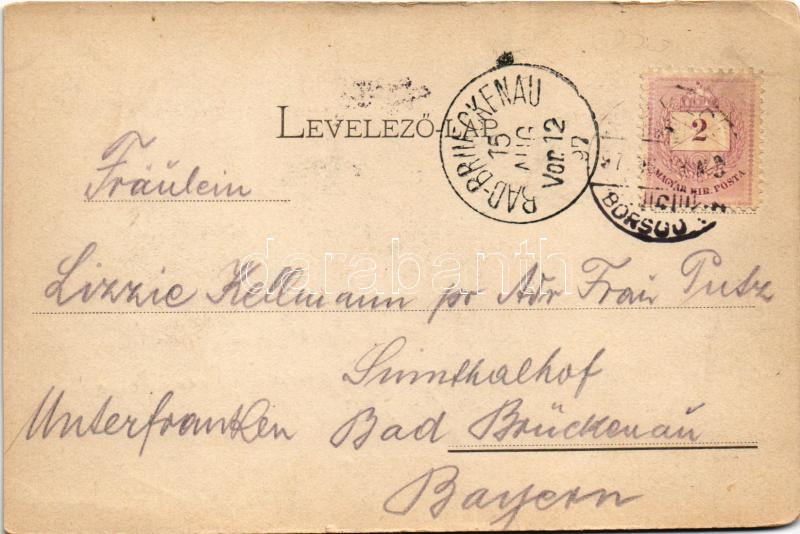 LEVELEZŐ-LAP
BAD-BRUECKENAU
15
AUG
Vor. 12
97
2
MAGYAR KIR. POSTA
BORSOD
Fräulein
Lizzie Kellmann pr Adr Frau Putz
Sinnthalhof
Unterfranken Bad Brückenau
Bayern
darabanth